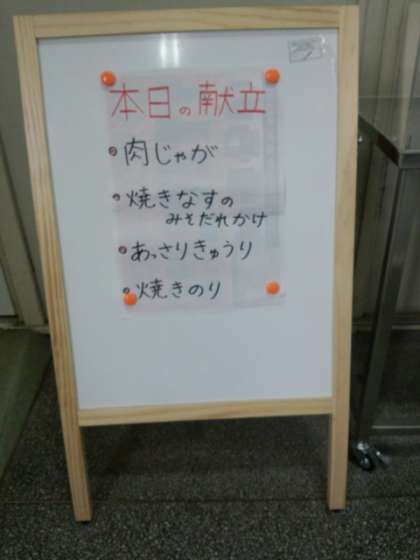 本日の献立
肉じゃが
焼きなすの
みそだれかけ
あっさりきゅうり
焼きのり